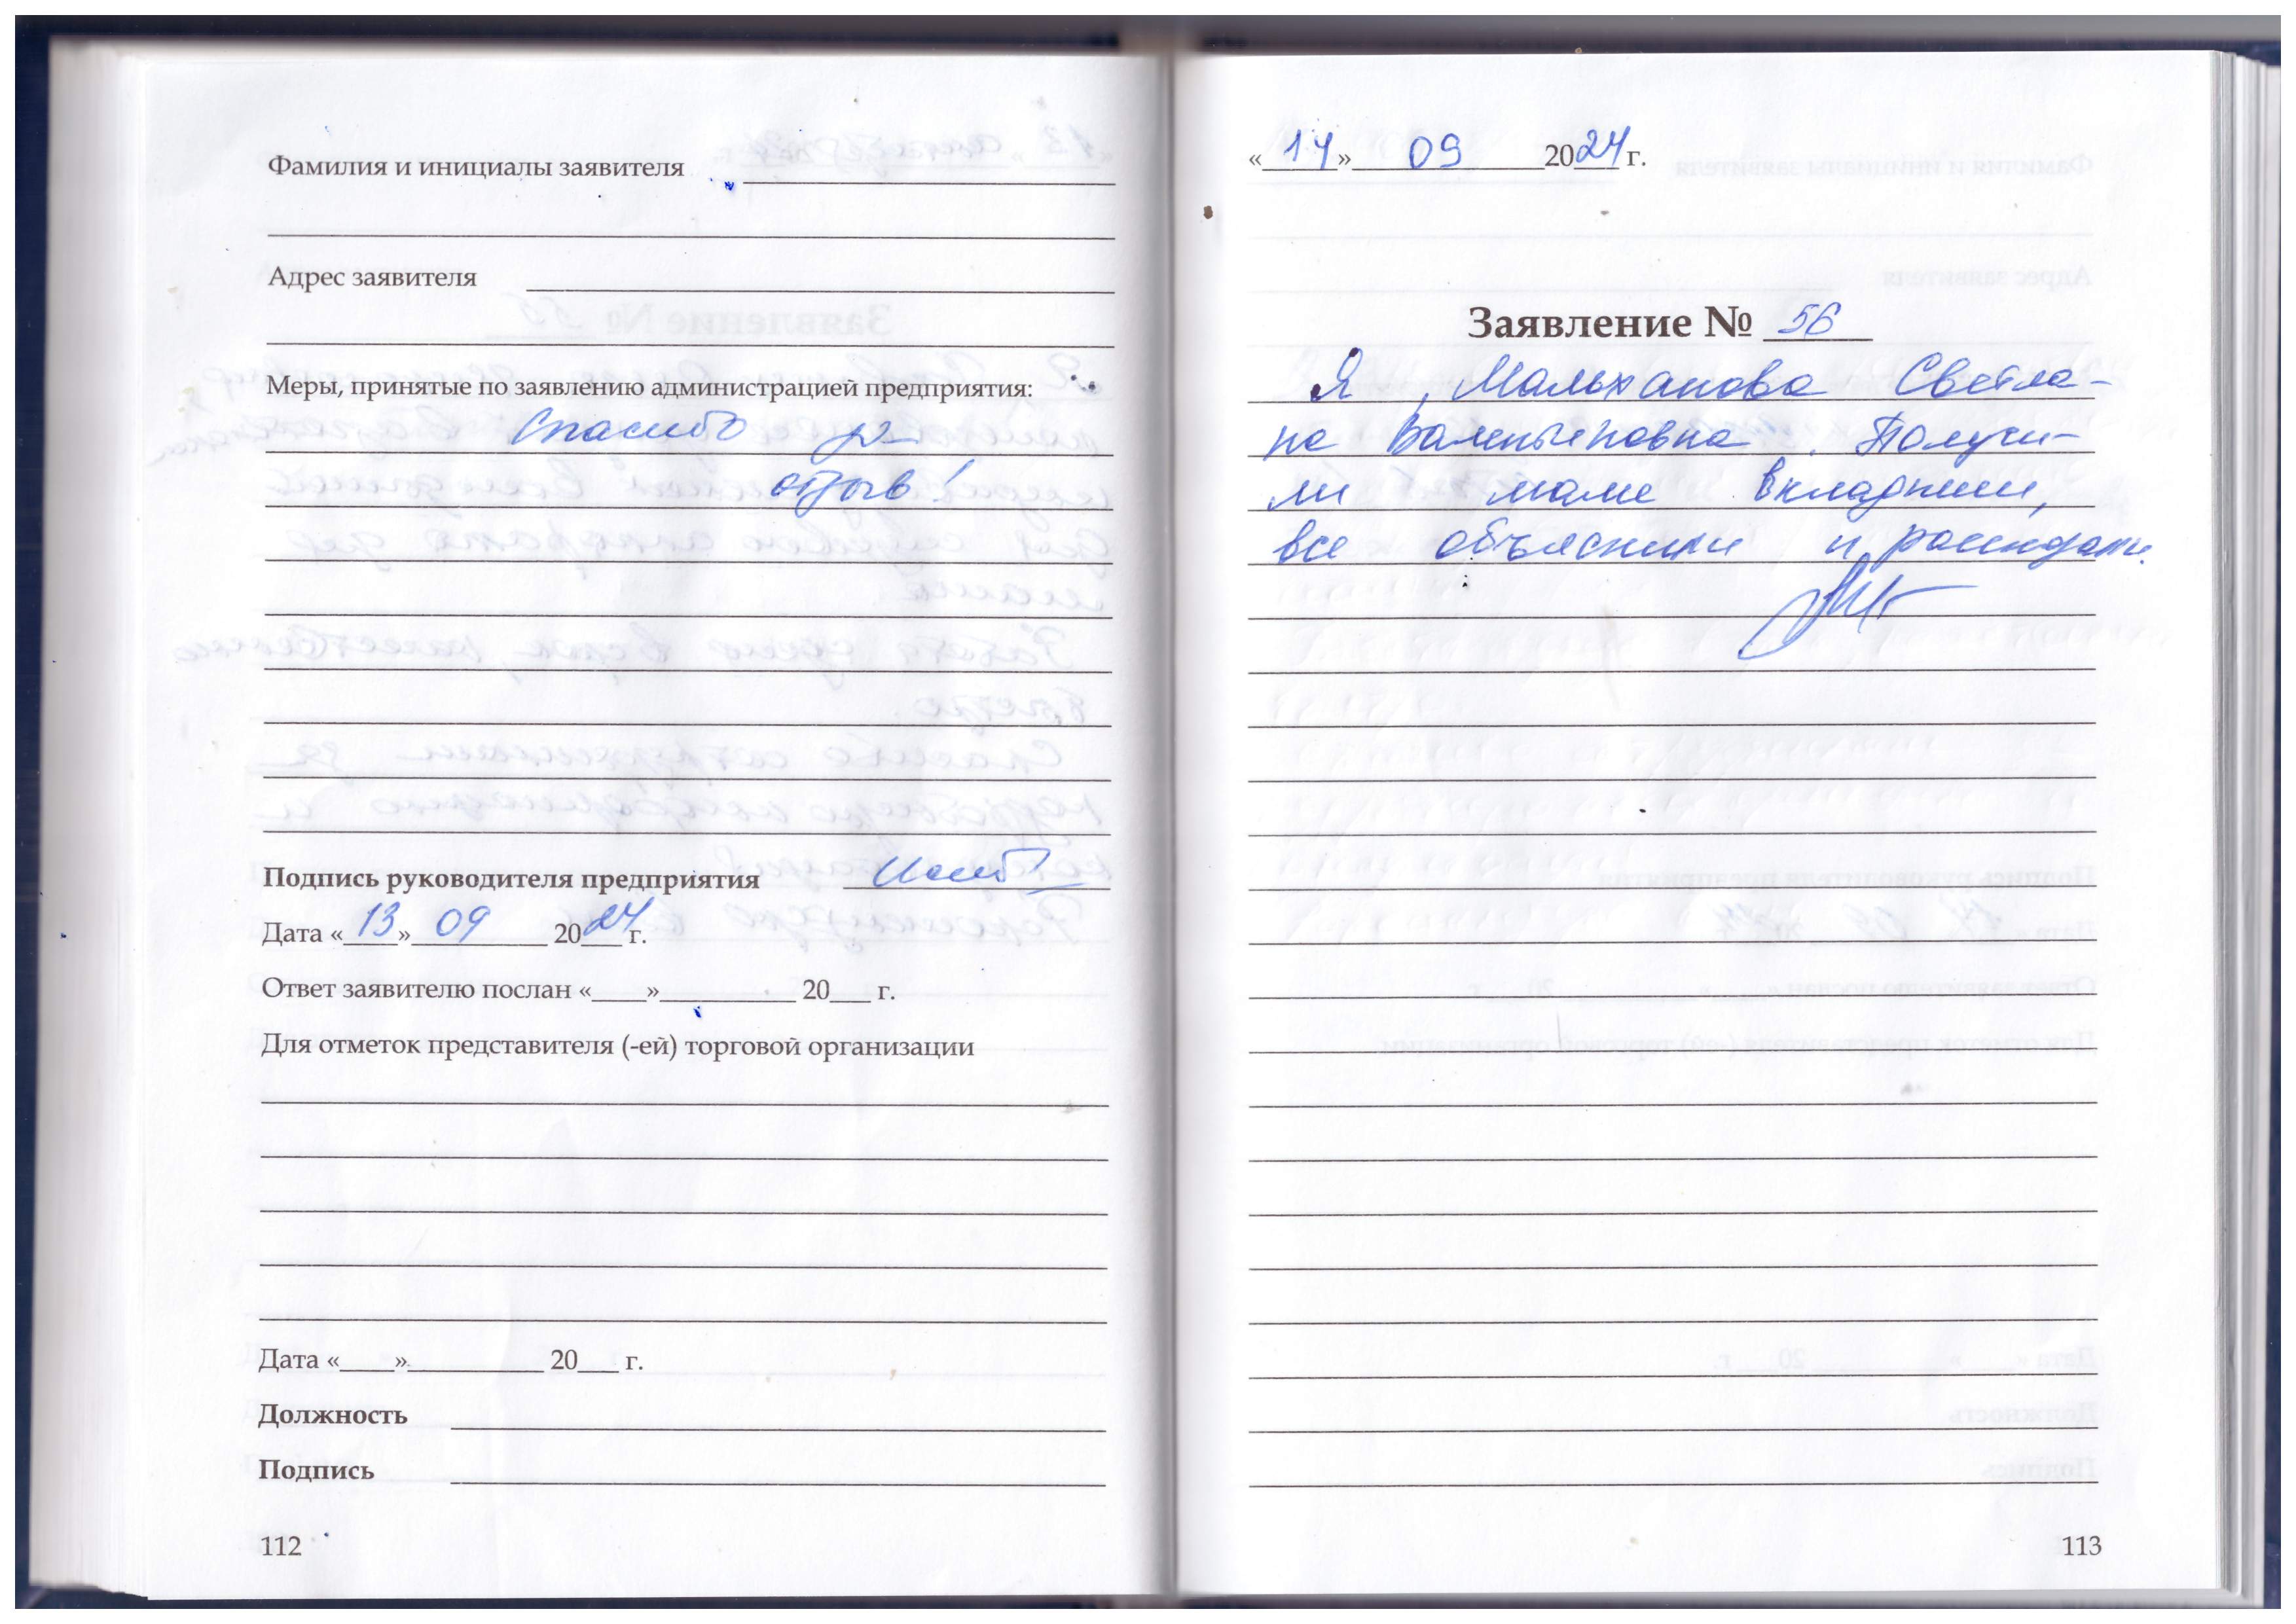 Фамилия и инициалы заявителя
Адрес заявителя
Меры, принятые по заявлению администрацией предприятия:
Спасибо за
отзыв!
Подпись руководителя предприятия
Дата «13» 09 2024 г.
Ответ заявителю послан «____»__________ 20___ г.
Для отметок представителя (-ей) торговой организации
Дата «____»__________ 20___ г.
Должность
Подпись
112
«14» 09 2024 г.
Заявление № 56
Я, Мальханова Светла-
на Валентиновна. Получи-
ли маме вкладыши,
все объяснили и рассказали.
113